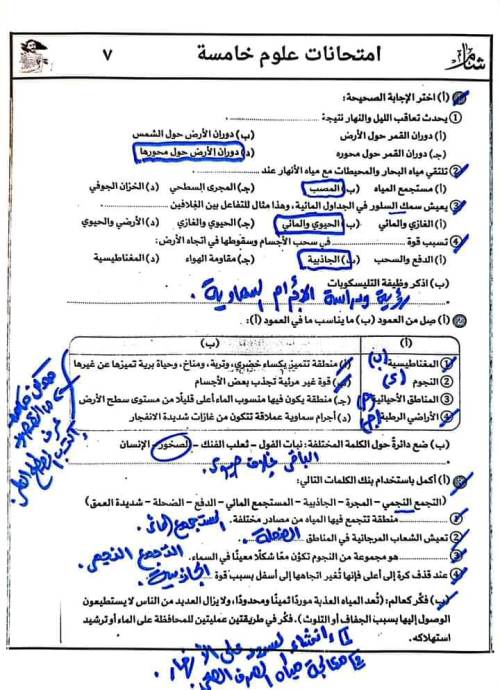 شاطر
امتحانات علوم خامسة
٧
(أ) اختر الإجابة الصحيحة:
١ يحدث تعاقب الليل والنهار نتيجة: ............
(أ) دوران القمر حول الأرض (ب) دوران الأرض حول الشمس
(جـ) دوران القمر حول محوره (د) دوران الأرض حول محورها
٢ تلتقي مياه البحار والمحيطات مع مياه الأنهار عند ............
(أ) مستجمع المياه (ب) المصب (جـ) المجرى السطحي (د) الخزان الجوفي
٣ يعيش سمك السلور في الجداول المائية، وهذا مثال للتفاعل بين الغلافين ............
(أ) الغازي والمائي (ب) الحيوي والمائي (جـ) الحيوي والغازي (د) الأرضي والحيوي
٤ تسبب قوة ............ في سحب الأجسام وسقوطها في اتجاه الأرض:
(أ) الدفع والسحب (ب) الجاذبية (جـ) مقاومة الهواء (د) المغناطيسية
(ب) اذكر وظيفة التليسكوبات
رؤية ودراسة الأجرام السماوية.
(أ) صِل من العمود (ب) ما يناسب ما في العمود (أ):
(أ) (ب)
١ المغناطيسية (ب) (أ) منطقة تتميز بكساء خضري، وتربة، ومناخ، وحياة برية تميزها عن غيرها
٢ النجوم (د) (ب) قوة غير مرئية تجذب بعض الأجسام
٣ المناطق الأحيائية (أ) (جـ) منطقة يكون فيها منسوب الماء أعلى قليلًا من مستوى سطح الأرض
٤ الأراضي الرطبة (جـ) (د) أجرام سماوية عملاقة تتكون من غازات شديدة الانفجار
(ب) ضع دائرةً حول الكلمة المختلفة: نبات الفول - ثعلب الفنك - الصخور - الإنسان
الباقي غلاف حيوي.
(أ) أكمل باستخدام بنك الكلمات التالي:
(التجمع النجمي - المجرة - الجاذبية - المستجمع المائي - الدفع - الضحلة - شديدة العمق)
١ ............ منطقة تتجمع فيها المياه من مصادر مختلفة. المستجمع المائي.
٢ تعيش الشعاب المرجانية في المناطق ............ الضحلة.
٣ ............ هو مجموعة من النجوم تكوّن معًا شكلًا معينًا في السماء. التجمع النجمي
٤ عند قذف كرة إلى أعلى فإنها تُغير اتجاهها إلى أسفل بسبب قوة ............ الجاذبية
(ب) فكّر كعالم: (تُعد المياه العذبة موردًا ثمينًا ومحدودًا، ولا يزال العديد من الناس لا يستطيعون
الوصول إليها بسبب الجفاف أو التلوث). فكّر في طريقتين عمليتين للمحافظة على الماء أو ترشيد
استهلاكه.
١ إنشاء السدود على الأنهار.
٢ معالجة مياه الصرف الصحي.